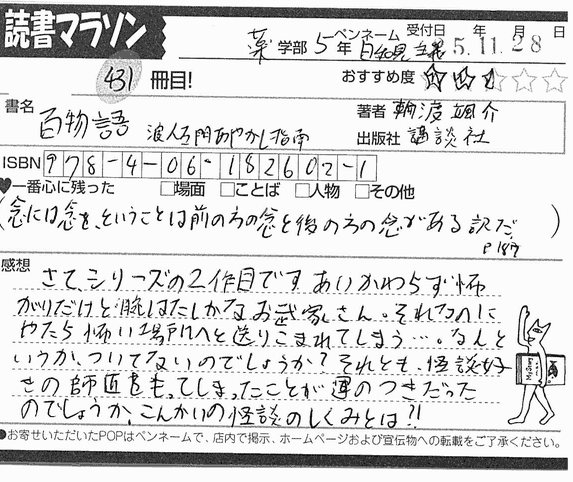 読書マラソン
薬 学部 5 年 ペンネーム 自分見主義 受付日 年 月 日 5.11.28
431 冊目! おすすめ度 ★★☆☆☆
書名 百物語 浪人左門あやかし指南
著者 輪渡颯介
出版社 講談社
ISBN 978-4-06-182602-1
♥一番心に残った □場面 □ことば □人物 □その他
(念には念を、ということは前の方の念と後の方の念がある訳だ )
P187
感想
さて、シリーズの2作目です。あいかわらず怖
がりだけど腕はたしかなお武家さん。それなのに
やたら怖い場所へと送りこまれてしまう…。なんと
いうか、ついてないのでしょうか?それとも、怪談好
きの師匠をもってしまったことが運のつきだった
のでしょうか、こんかいの怪談のしくみとは?!
●お寄せいただいたPOPはペンネームで、店内で掲示、ホームページおよび宣伝物への転載をご了承ください。